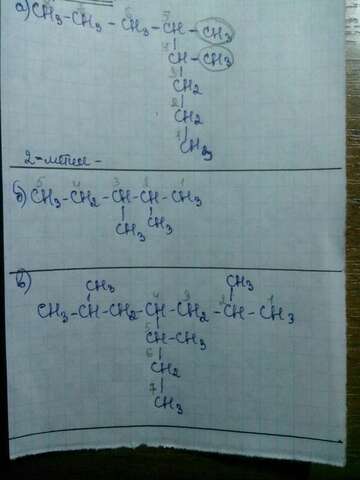 а) CH₃ - CH₃ - CH₃ - CH - CH₃
CH - CH₃
CH₂
CH₂
CH₃
2-метил -
5 4 3 2 1
б) CH₃ - CH₂ - CH - CH - CH₃
CH₃ CH₃
в)
CH₃ CH₃
4 3 2 1
CH₃ - CH - CH₂ - CH - CH₂ - CH - CH₃
5 CH - CH₃
6 CH₂
7 CH₃